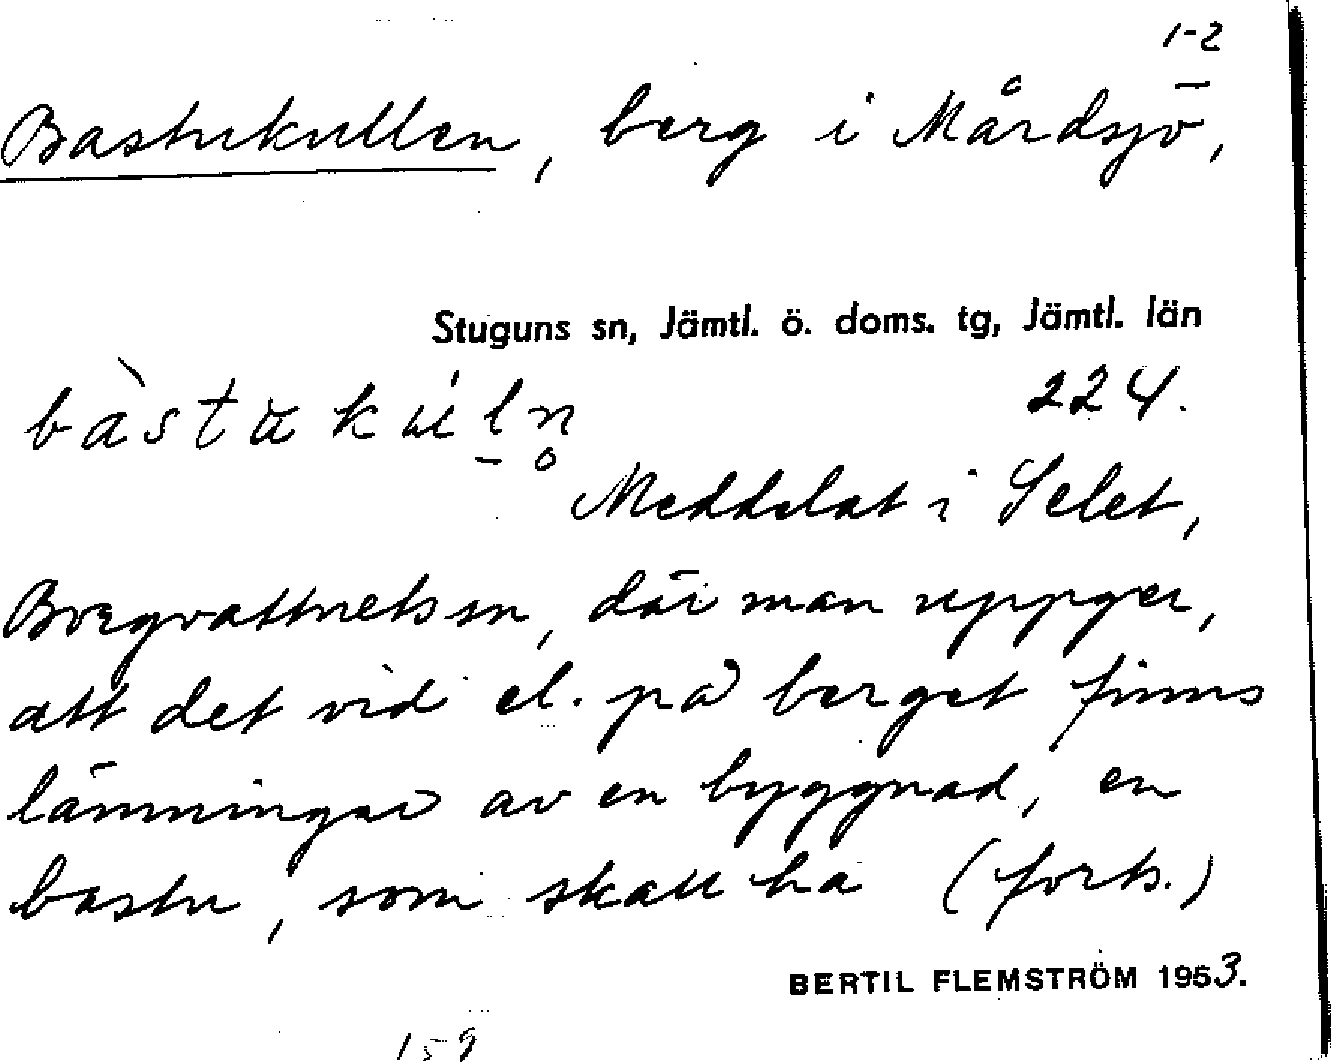 1-2
Bastukullen, berg i Mårdsjö,
Stuguns sn, Jämtl. ö. doms. tg, Jämtl. län
224.
Meddelat i Selet,
Borgvattnets sn, där man uppger,
att det vid el. på berget finns
lämningar av en byggnad, en
bastu, som skall ha (forts.)
BERTIL FLEMSTRÖM 1953.
159